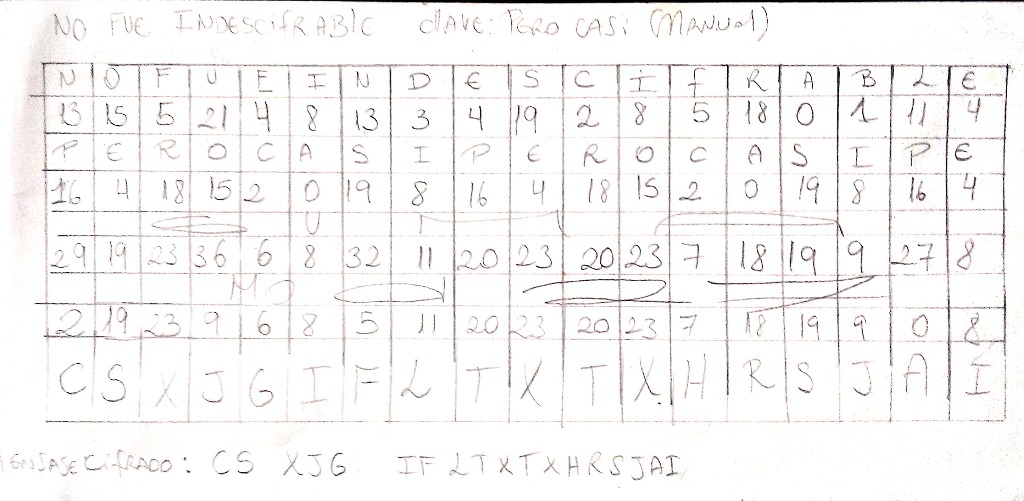 NO FUE INDESCIFRABLE CLAVE: PERO CASI (MANUAL)
N O F U E I N D E S C I F R A B L E
13 15 5 21 4 8 13 3 4 19 2 8 5 18 0 1 11 4
P E R O C A S I P E R O C A S I P E
16 4 18 15 2 0 19 8 16 4 18 15 2 0 19 8 16 4
29 19 23 36 6 8 32 11 20 23 20 23 7 18 19 9 27 8
2 19 23 9 6 8 5 11 20 23 20 23 7 18 19 9 0 8
C S X J G I F L T X T X H R S J A I
MENSAJE CIFRADO: CS XJG IFLTXTXHRSJAI